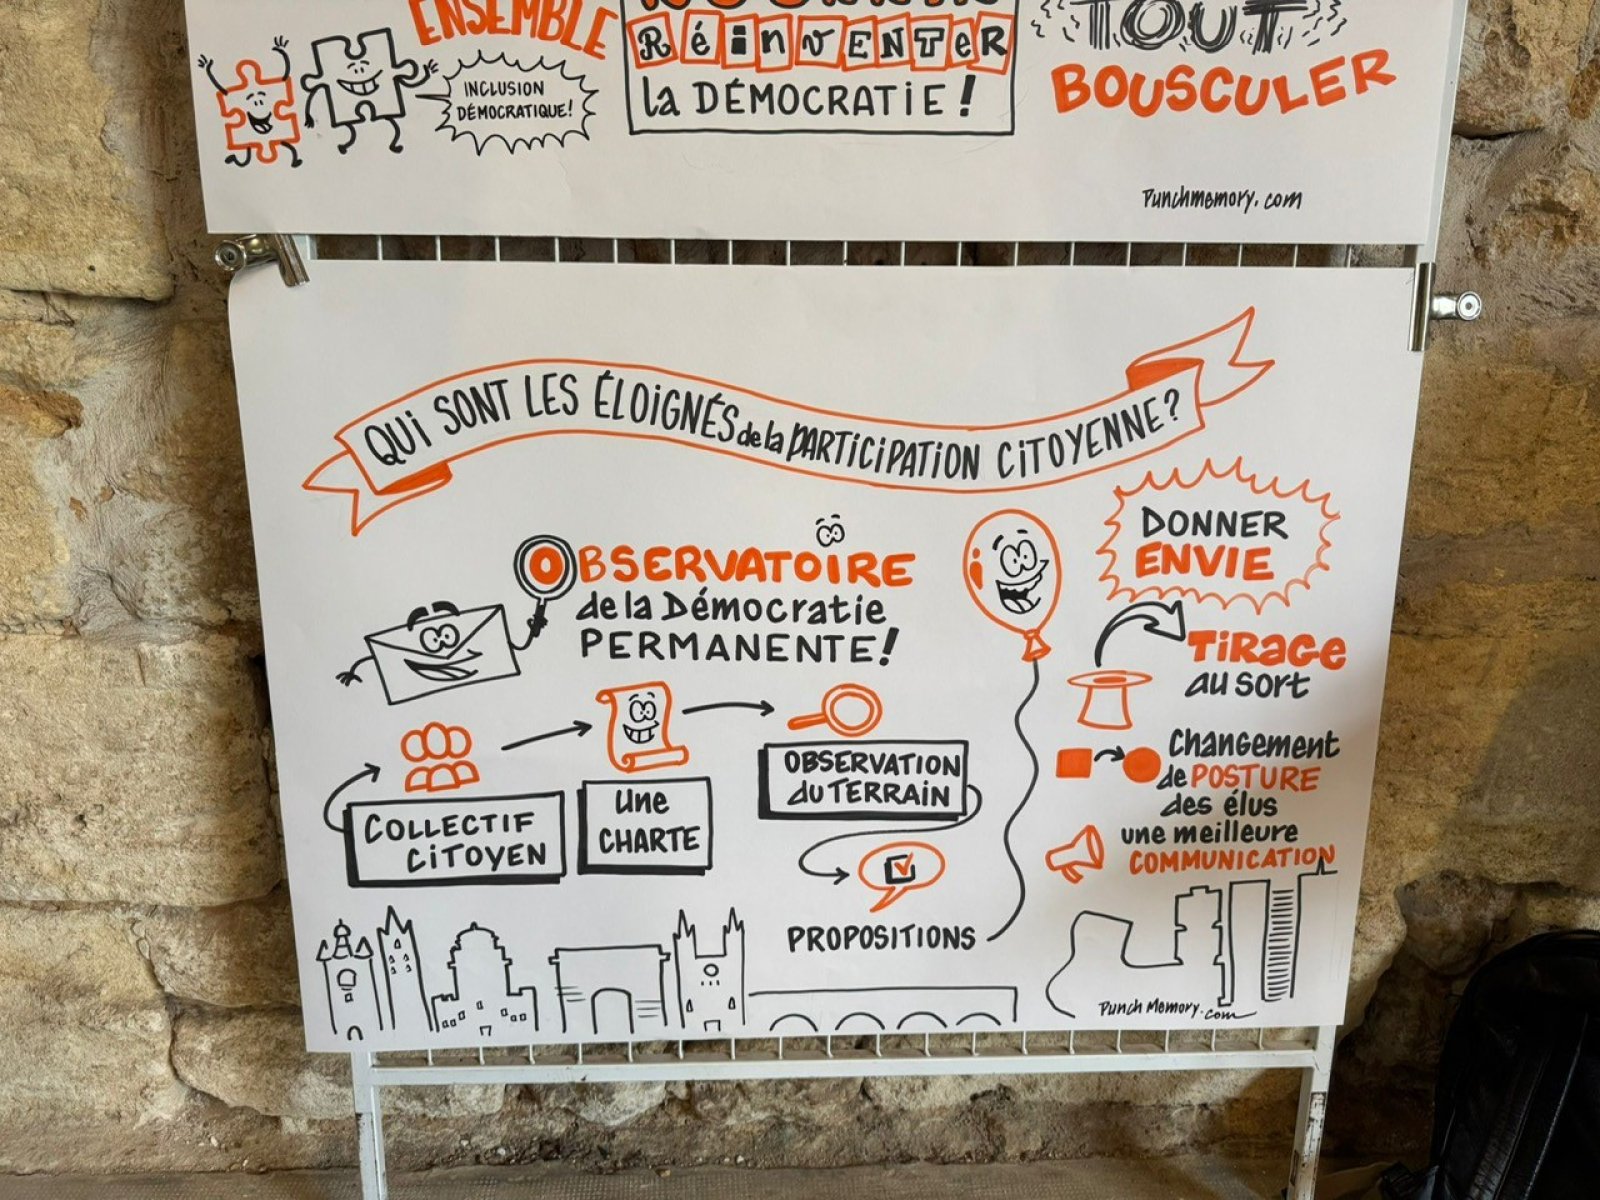 ENSEMBLE
INCLUSION
DÉMOCRATIQUE!
RéinVENTER
la DÉMOCRATIE!
TOUT
BOUSCULER
Punchmemory.com
QUI SONT LES ÉLOIGNÉS de la PARTICIPATION CITOYENNE?
OBSERVATOIRE
de la Démocratie
PERMANENTE!
COLLECTIF
CITOYEN
une
CHARTE
OBSERVATION
du TERRAIN
PROPOSITIONS
DONNER
ENVIE
TIRAGE
au sort
Changement
de POSTURE
des élus
une meilleure
COMMUNICATION
Punch Memory.com